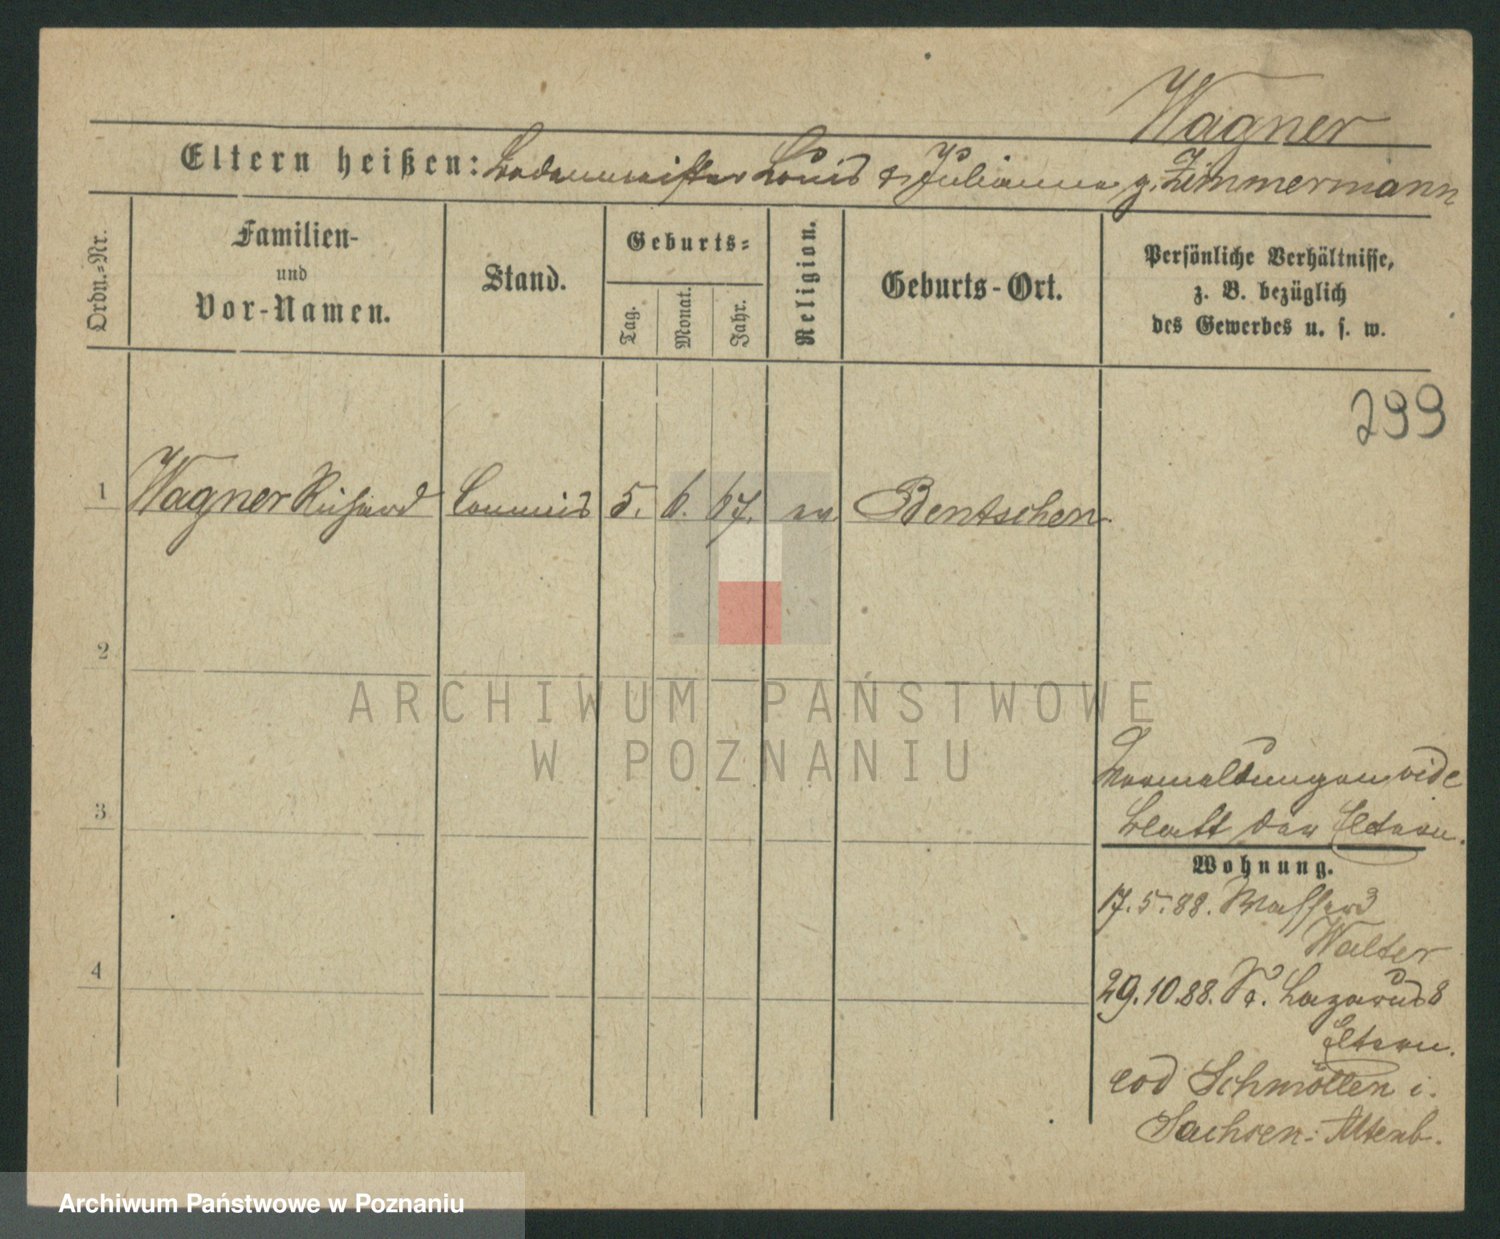 Wagner
Eltern heißen: Bodenmeister Louis & Julianna g. Zimmermann
Ordn.=Nr.
Familien-
und
Vor-Namen.
Stand.
Geburts=
Tag.
Monat.
Jahr.
Religion.
Geburts-Ort.
Persönliche Verhältnisse,
z. B. bezüglich
des Gewerbes u. s. w.
299
1 Wagner Richard Commis 5. 6. 67. ev Bentschen
2
ARCHIWUM PAŃSTWOWE
W POZNANIU
3
4
vide
Blatt der Eltern.
Wohnung.
17.5.88.
Walter
29.10.88. St. Lazarus 8
Eltern.
eod Schmöllen i.
Sachsen-Altenb.
Archiwum Państwowe w Poznaniu